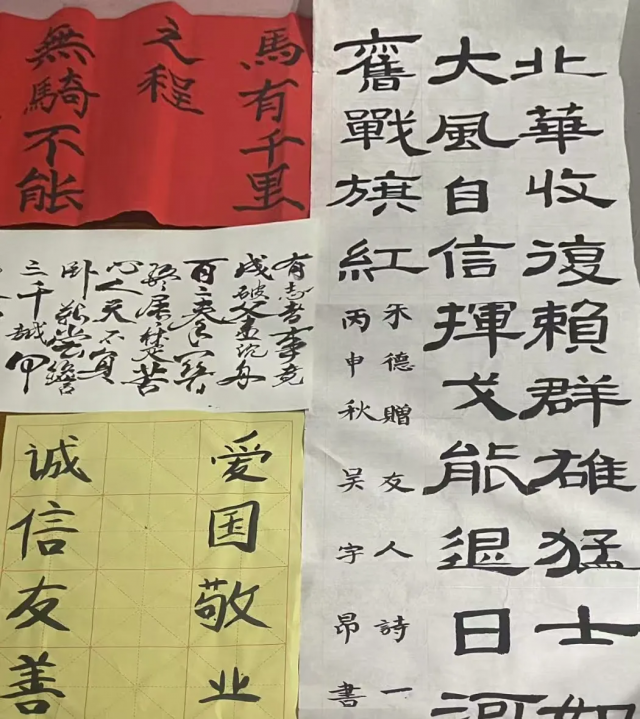 馬有千里
之程
無騎不能
有志者事竟
成破釜沉舟
百二秦關
終屬楚苦
心人天不負
卧薪嘗膽
三千越甲
爱国敬业
诚信友善
北華收復賴群雄猛士如
大風自信揮戈能退日河
奮戰旗紅
朱德贈友人詩一
丙申秋吴字昂書